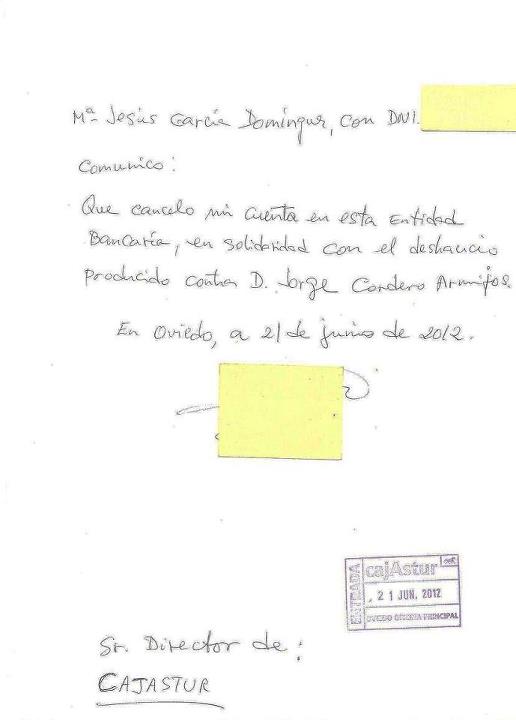 Mª Jesús García Domínguez, con DNI.
Comunico:
Que cancelo mi cuenta en esta Entidad
Bancaria, en solidaridad con el deshaucio
producido contra D. Jorge Cordero Armijos.
En Oviedo, a 21 de junio de 2012.
ENTRADA
cajAstur
21 JUN. 2012
OVIEDO OFICINA PRINCIPAL
Sr. Director de:
CAJASTUR